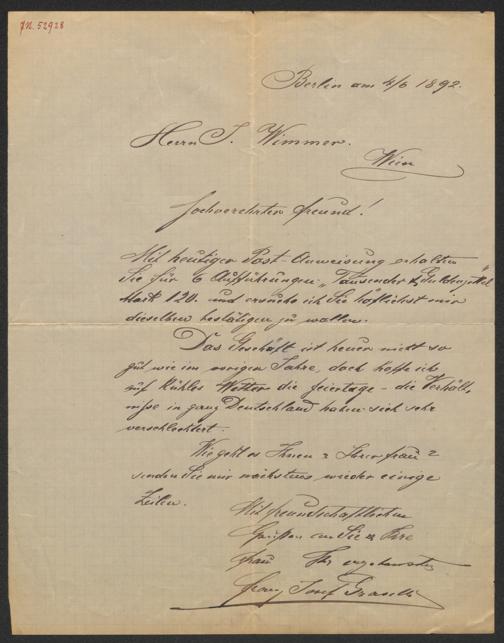 J.N. 52928
Berlin am 4/6 1892.
Herrn J. Wimmer.
Wien
Hochverehrter Freund!
Mit heutiger Post-Anweisung erhalten
Sie für 6 Aufführungen „Tausender &
Mark 120.- und ersuche ich Sie höflichst mir
dieselben bestätigen zu wollen.
Das Geschäft ist heuer nicht so
gut wie im vorigen Jahre, doch hoffe ich
auf kühles Wetter die Feiertage - die Verhält-
nisse in ganz Deutschland haben sich sehr
verschlechtert.
Wie geht es Ihnen & Ihrer Frau?
senden Sie mir nächstens wieder einige
Zeilen.
Mit freundschaftlichen
Grüßen an Sie & Ihre
Frau Ihr ergebenster
Franz Josef Graselli